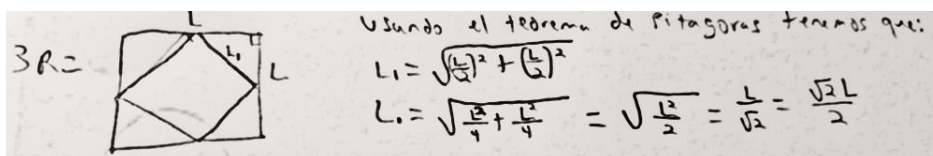 3R=
L
L₁
L
Usando el teorema de Pitagoras tenemos que:
L₁ = √((L/2)² + (L/2)²)
L₁ = √(L²/4 + L²/4) = √(L²/2) = L/√2 = √2L/2